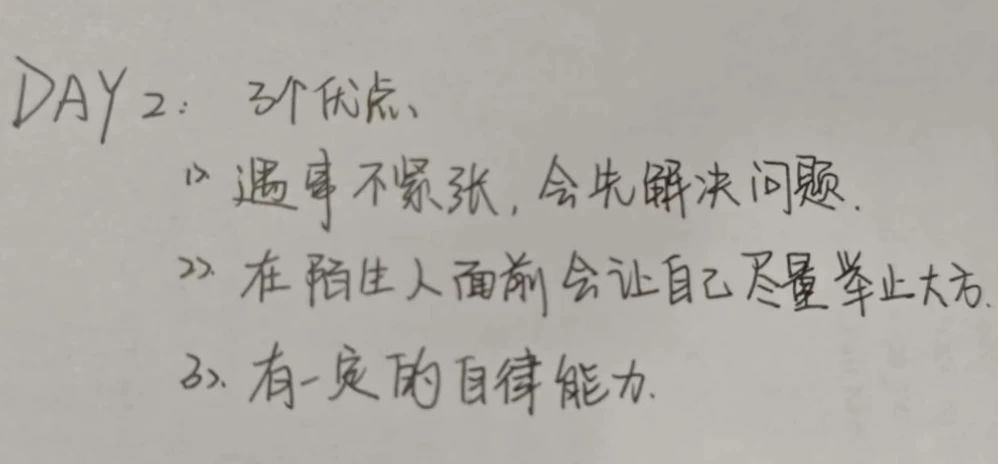 DAY 2: 3个优点、
1> 遇事不紧张, 会先解决问题.
2>. 在陌生人面前会让自己尽量举止大方.
3>. 有一定的自律能力.